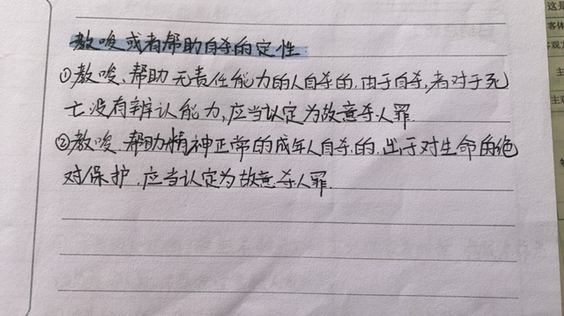 教唆或者帮助自杀的定性
①教唆、帮助无责任能力的人自杀的,由于自杀者对于死
亡没有辨认能力,应当认定为故意杀人罪.
②教唆、帮助精神正常的成年人自杀的,出于对生命的绝
对保护,应当认定为故意杀人罪.
这是
客体